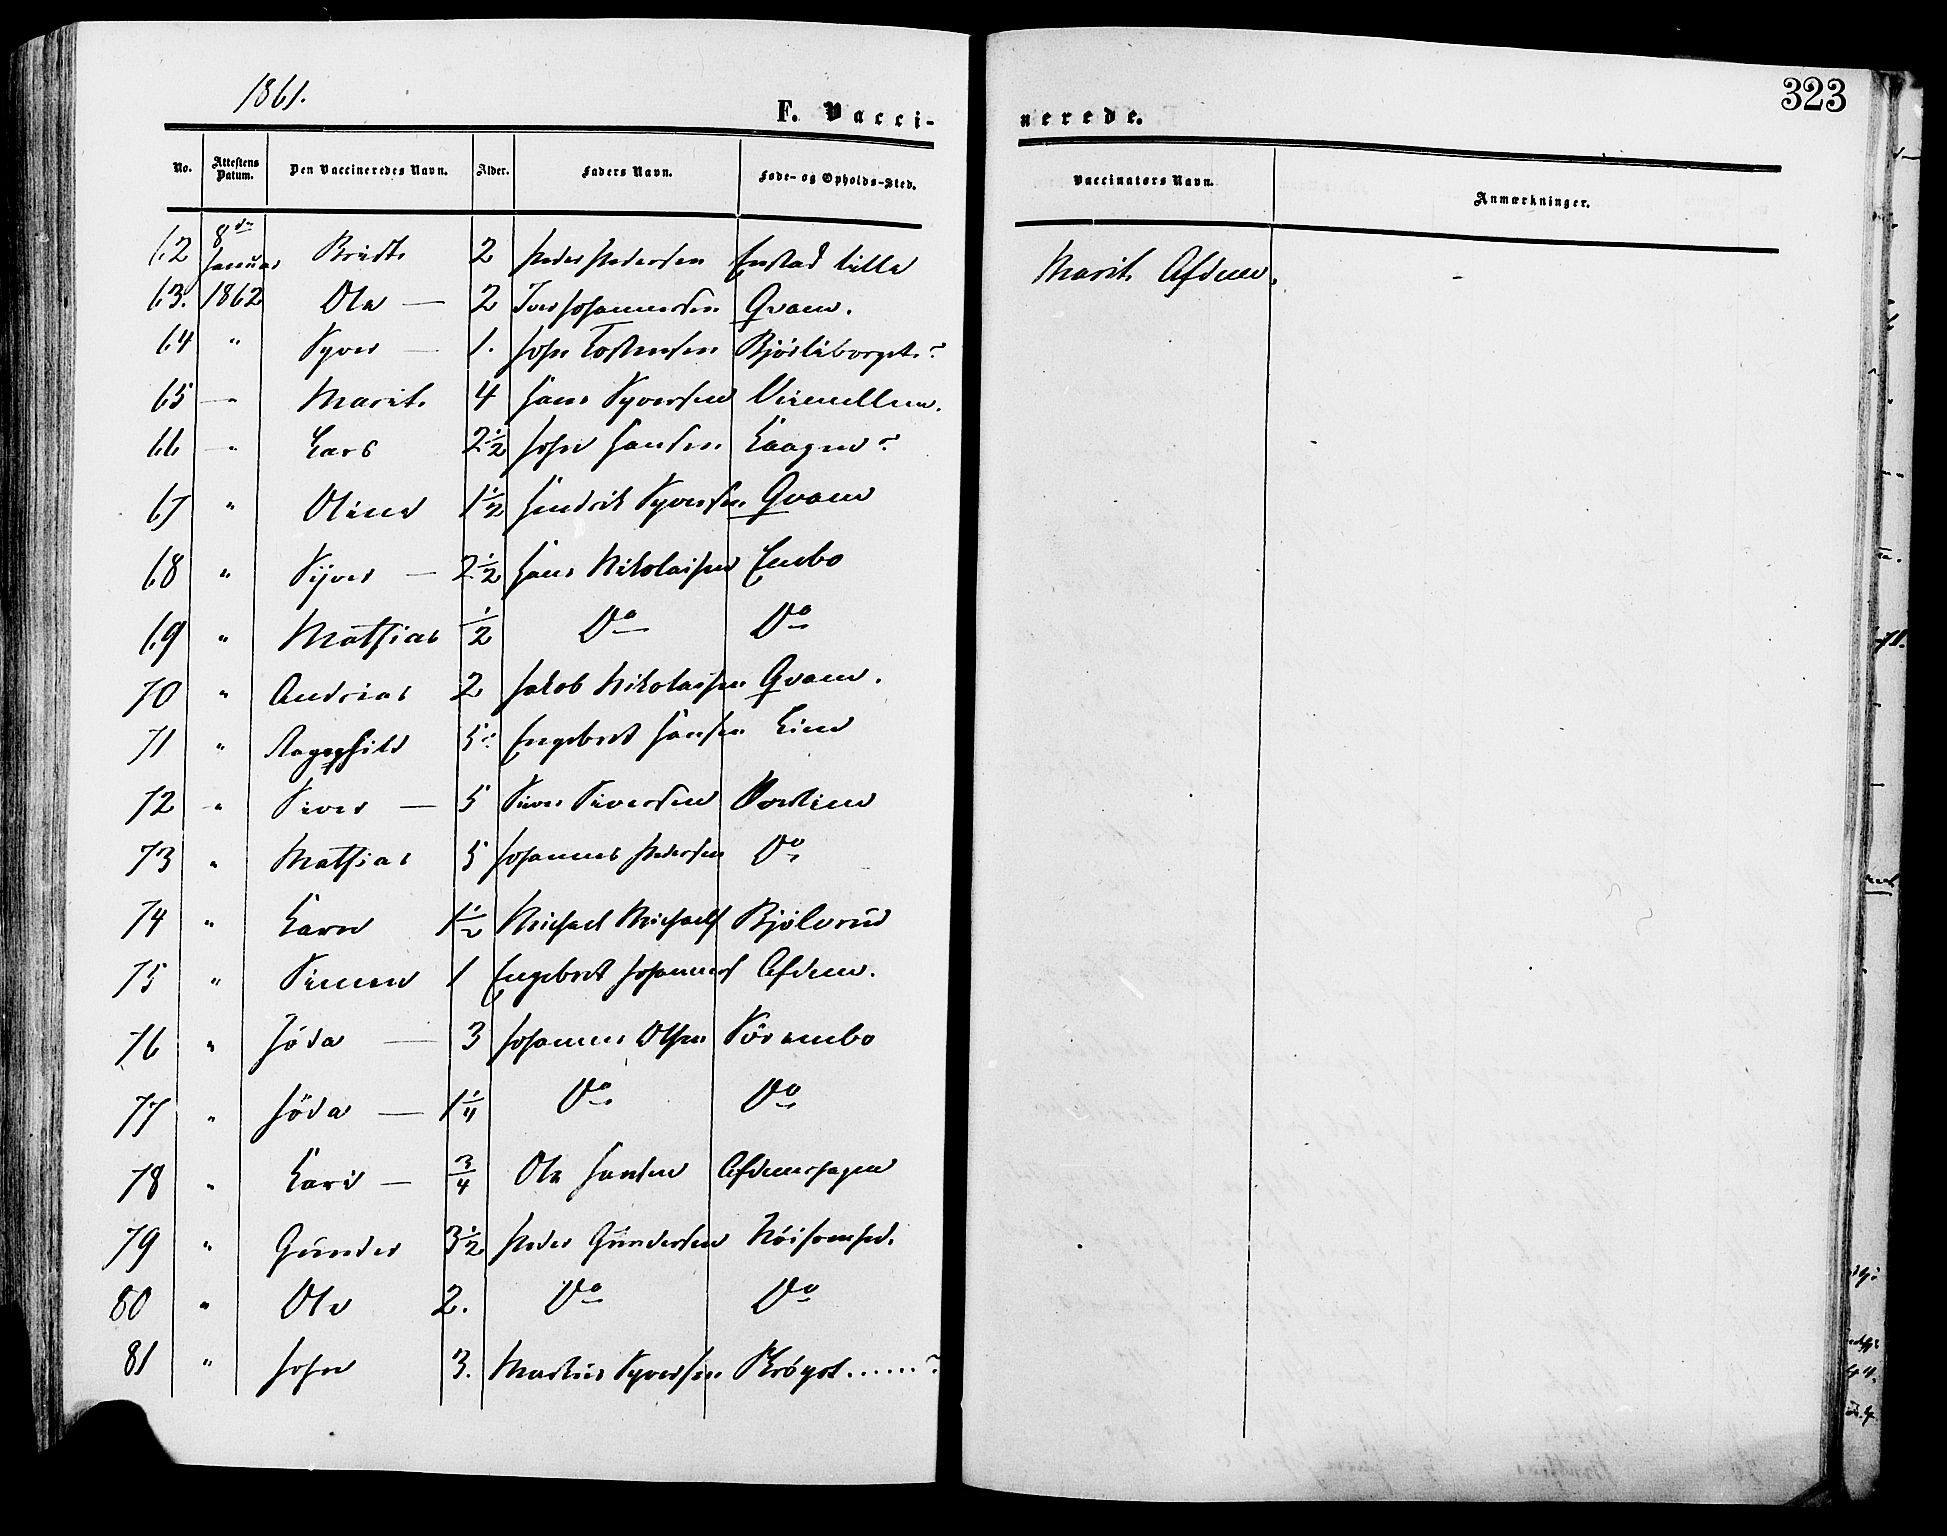 1861.
323
F. Vacci-
nerede.
No. Attestens Datum. Den Vaccineredes Navn. Alder. Faders Navn. Føde- og Opholds-Sted. Vaccinators Navn. Anmærkninger.
62 8de Januar Bridt 2 Peder Pedersen Enstad lille Marit Afdem.
63. 1862 Ole — 2 Iver Johannesen Qvam.
64 " Syver — 1. John Tostensen ?
65 — " Marit 4 Hans Syversen
66 — " Lars 2 1/2 John Hansen Haagen ?
67 " Oline 1 1/2 Hendrik Syversen Qvam
68 " Syver — 2 1/2 Hans Nikolaisen Embo
69 " Mathias 1/2 Do Do
70 " Andreas 2 Jakob Nikolaisen Qvam.
71 " Ragnhild 5 Engebret Hansen Lien
72 — " Siver — 5 Siver Siversen
73 " Mathias 5 Johannes Pedersen Do
74 " Karen 1 1/2 Michael Michaels Bjölverud
75 " Simen 1 Engebret Johannes Afdem.
76 " Jöda — 3 Johannes Olsen Sör embo
77 " Jöda — 1 1/4 Do Do
78 " Kari — 3/4 Ole Hansen Afdemshagen
79 " Gunder 3 1/2 Peder Gundersen
80 " Ole 2. Do Do
81 " John 3. Martin Syversen ...... ?